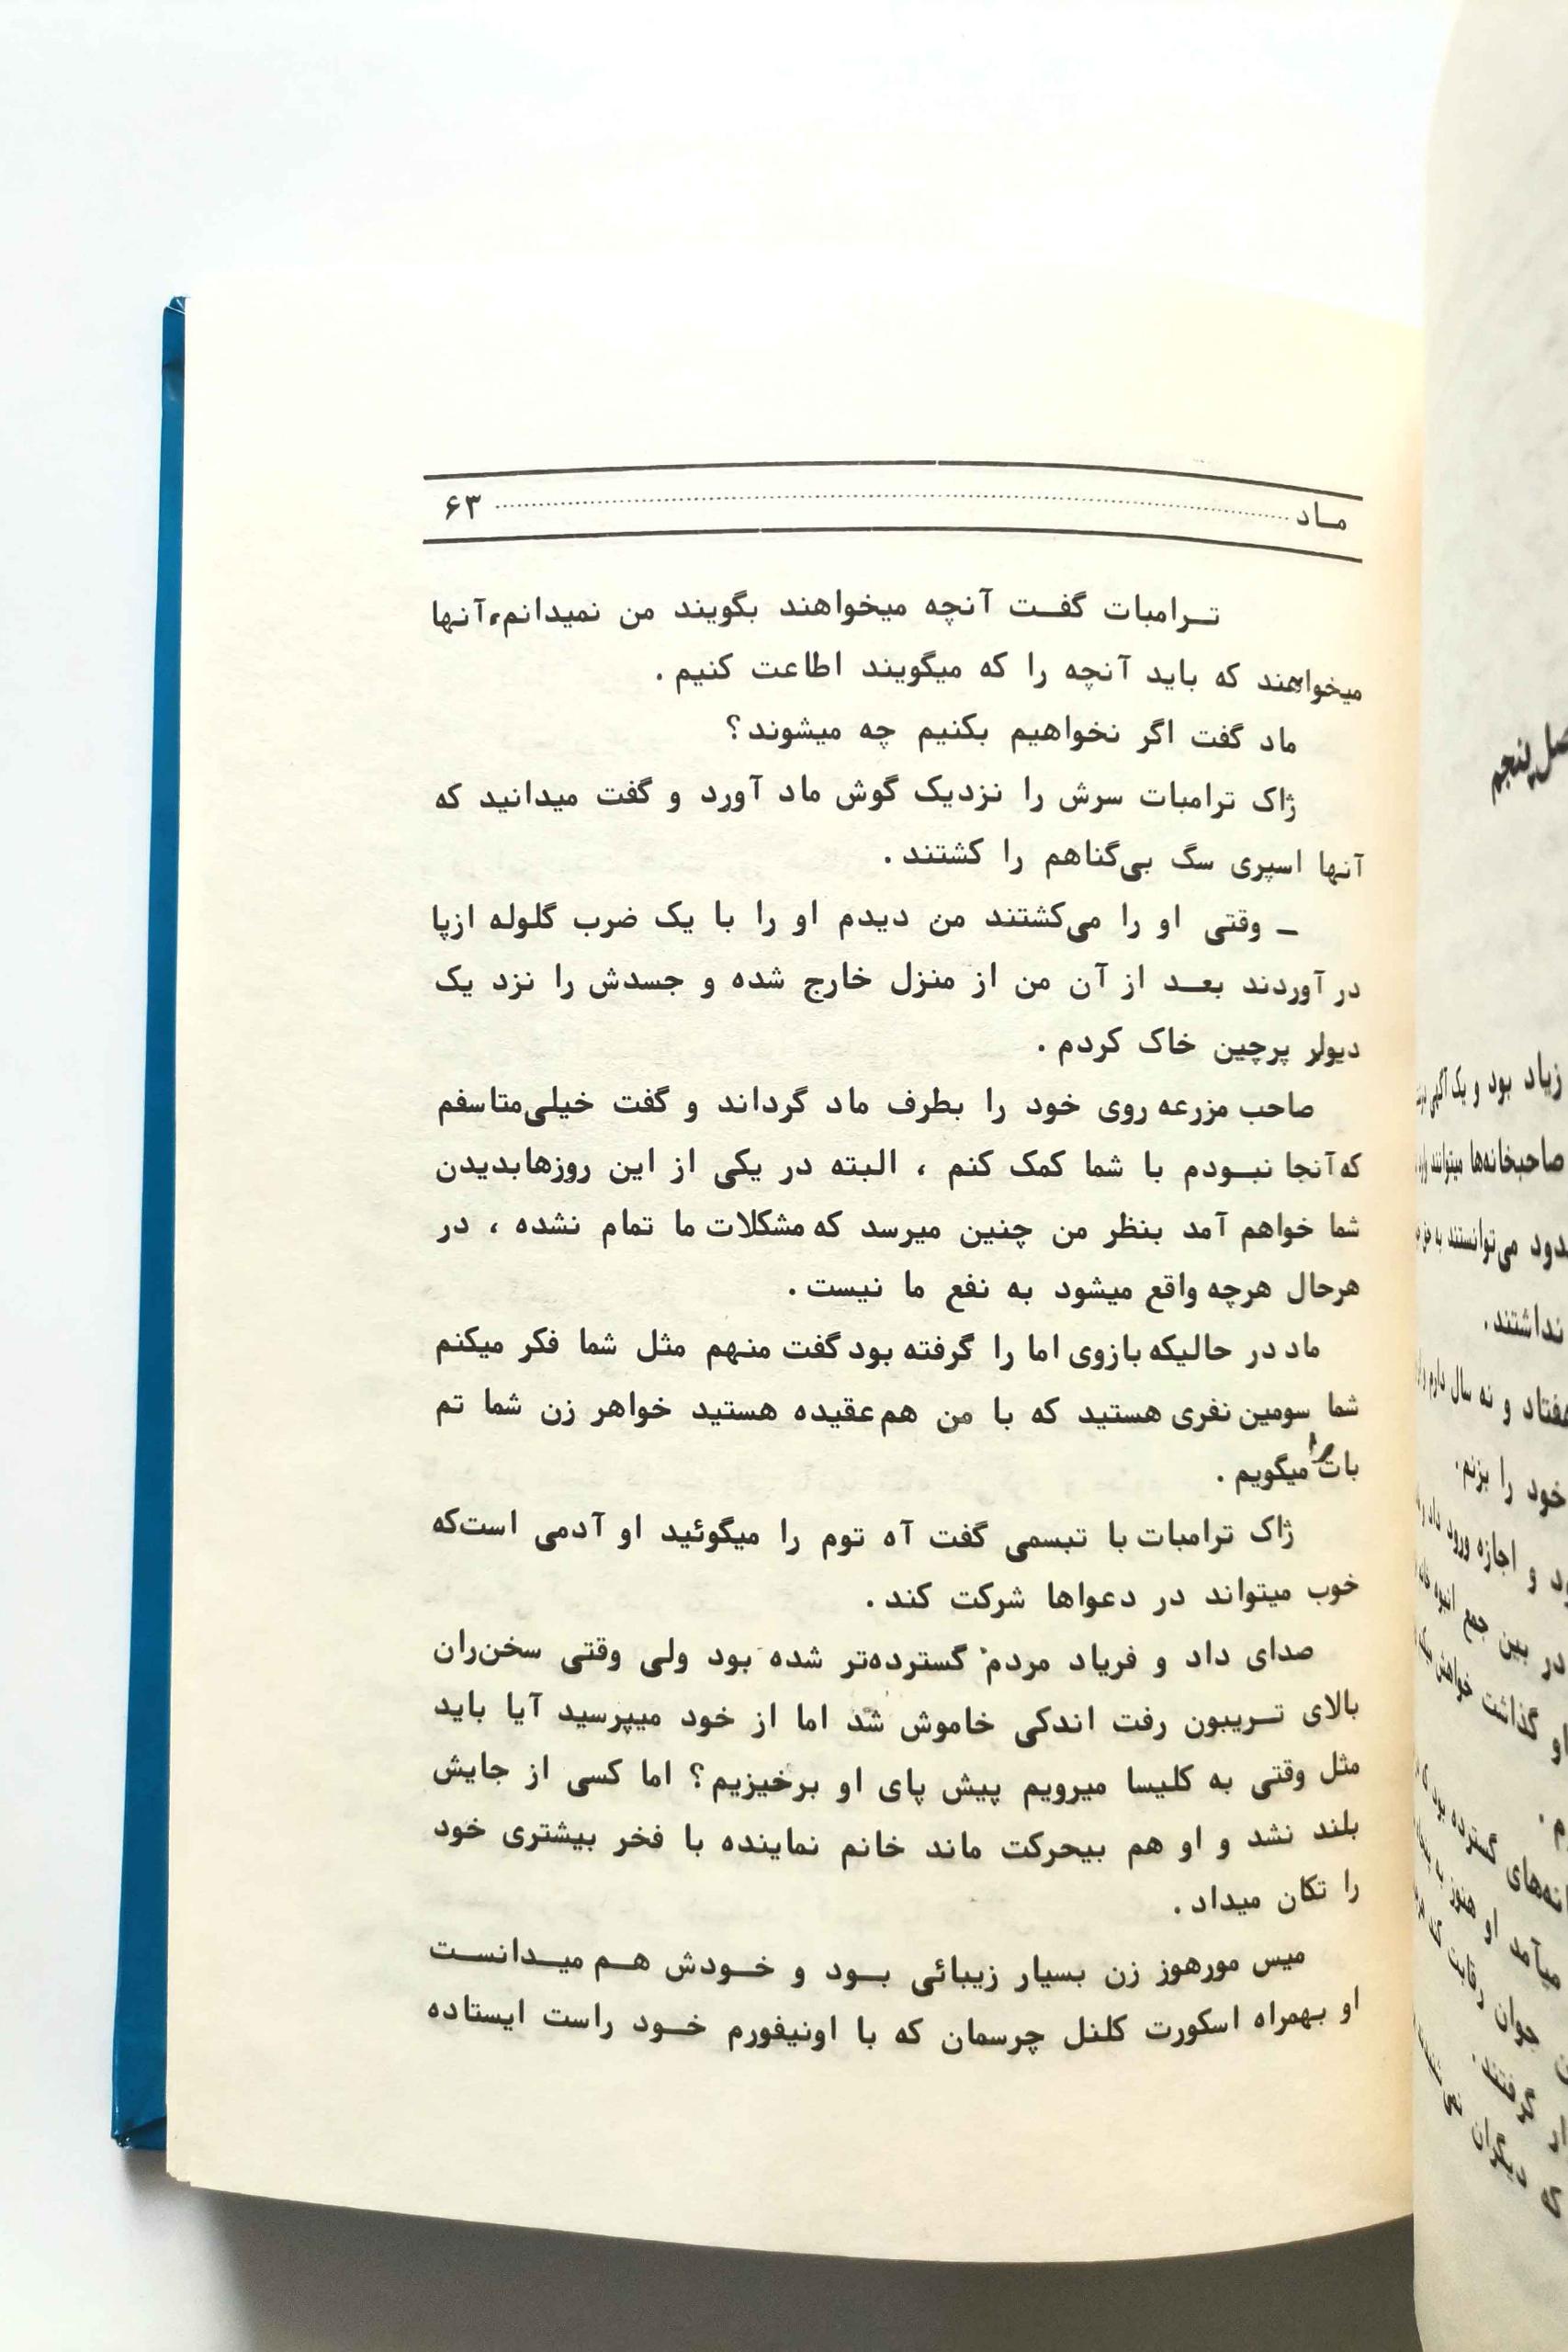 ماد ۶۳
ترامبات گفت آنچه میخواهند بگویند من نمیدانم، آنها
میخواهند که باید آنچه را که میگویند اطاعت کنیم .
ماد گفت اگر نخواهیم بکنیم چه میشوند؟
ژاک ترامبات سرش را نزدیک گوش ماد آورد و گفت میدانید که
آنها اسپری سگ بی‌گناهم را کشتند .
ـ وقتی او را می‌کشتند من دیدم او را با یک ضرب گلوله ازپا
در آوردند بعد از آن من از منزل خارج شده و جسدش را نزد یک
دیولر پرچین خاک کردم .
صاحب مزرعه روی خود را بطرف ماد گرداند و گفت خیلی‌متاسفم
که آنجا نبودم با شما کمک کنم ، البته در یکی از این روزهابدیدن
شما خواهم آمد بنظر من چنین میرسد که مشکلات ما تمام نشده ، در
هرحال هرچه واقع میشود به نفع ما نیست .
ماد در حالیکه بازوی اما را گرفته بود گفت منهم مثل شما فکر میکنم
شما سومین نفری هستید که با من هم‌عقیده هستید خواهر زن شما تم
بات را میگویم .
ژاک ترامبات با تبسمی گفت آه توم را میگوئید او آدمی است‌که
خوب میتواند در دعواها شرکت کند .
صدای داد و فریاد مردم گسترده‌تر شده بود ولی وقتی سخن‌ران
بالای تریبون رفت اندکی خاموش شد اما از خود میپرسید آیا باید
مثل وقتی به کلیسا میرویم پیش پای او برخیزیم؟ اما کسی از جایش
بلند نشد و او هم بیحرکت ماند خانم نماینده با فخر بیشتری خود
را تکان میداد .
میس مورهوز زن بسیار زیبائی بود و خودش هم میدانست
او بهمراه اسکورت کلنل چرسمان که با اونیفورم خود راست ایستاده
زیاد بود و یک آگهی
صاحبخانه‌ها میتوانند
می‌توانستند به
نداشتند .
و نه سال دارم
خود را بزنم .
و اجازه ورود داد
در بین جمع انبوه
او گذاشت خواهش
میآمد او هنوز
جوان
گرفتند .
دیگران